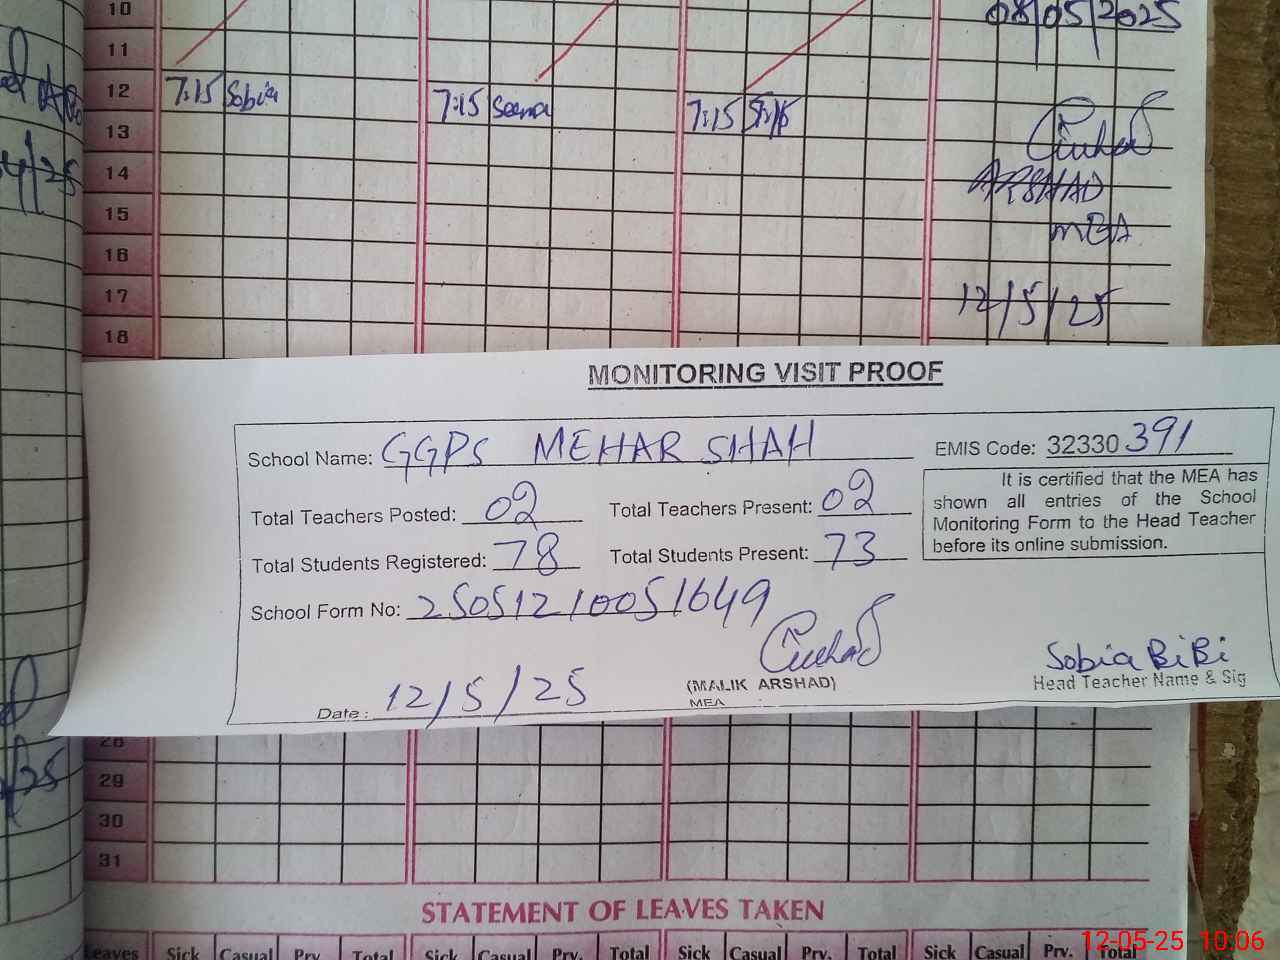 10
08/05/2025
11
12 7:15 Sobia 7:15 Seema 7:15
13
14
ARSHAD
15
MEA
16
17
12/5/25
18
MONITORING VISIT PROOF
School Name: GGPS MEHAR SHAH EMIS Code: 32330391
Total Teachers Posted: 02 Total Teachers Present: 02
Total Students Registered: 78 Total Students Present: 73
It is certified that the MEA has
shown all entries of the School
Monitoring Form to the Head Teacher
before its online submission.
School Form No: 250512100051649
Sobia BiBi
(MALIK ARSHAD) Head Teacher Name & Sig
MEA
Date: 12/5/25
28
29
30
31
STATEMENT OF LEAVES TAKEN
Leaves Sick Casual Prv. Total Sick Casual Prv. Total Sick Casual Prv. Total Sick Casual Prv. Total
12-05-25 10:06